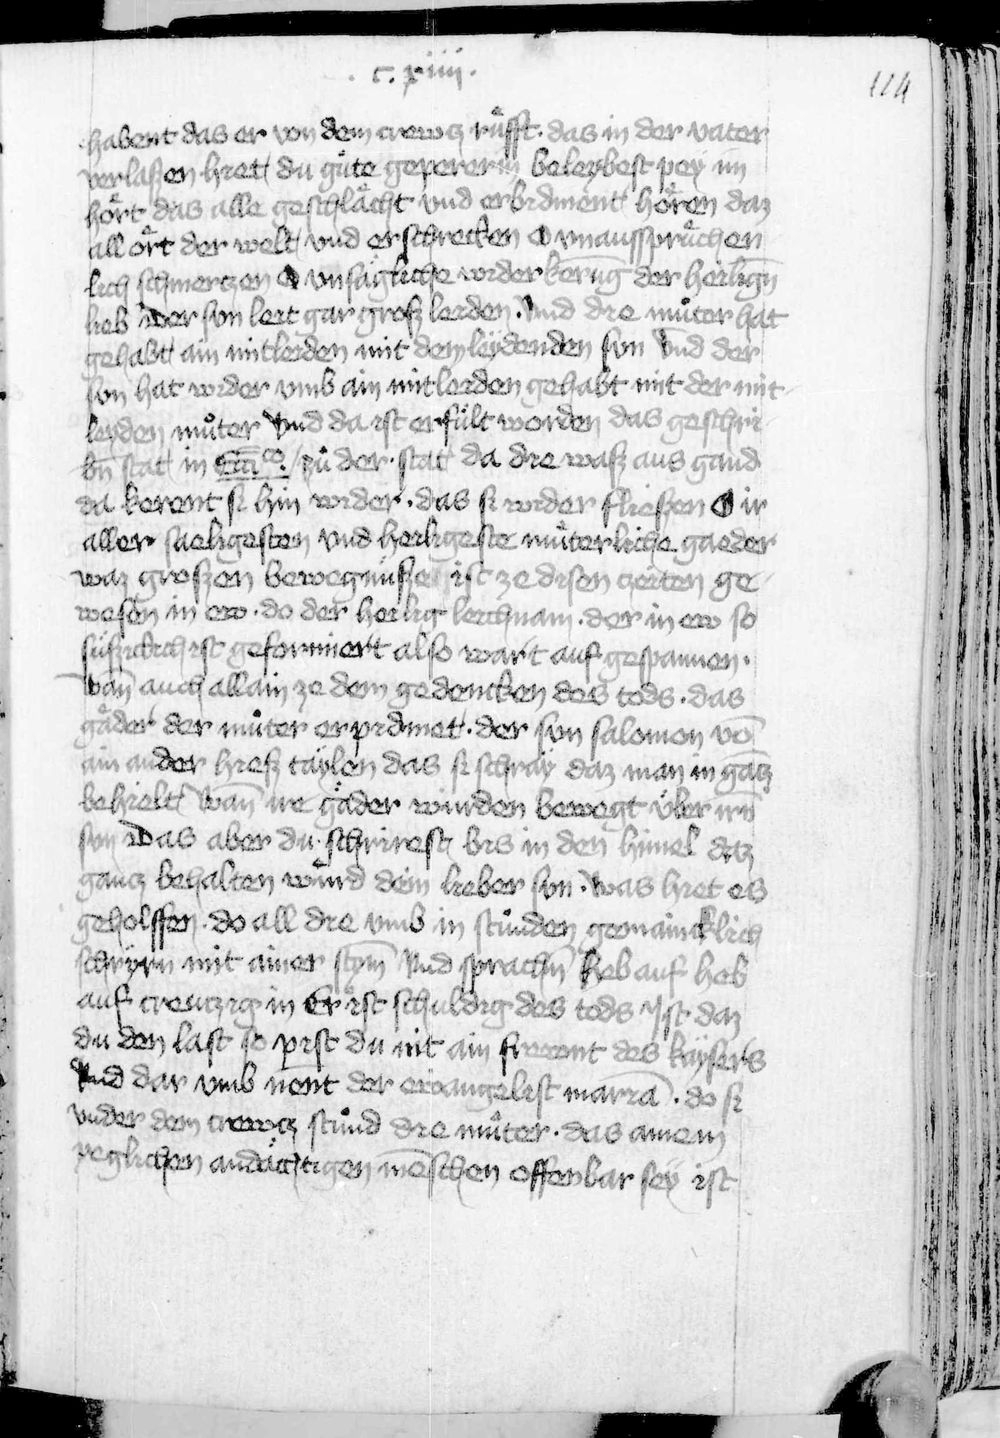 . c. xiiii .
114
habent das er von dem crewcz rüfft . das in der vater
verlaßen hiet du gůte gepererin beleybest pey im
hört das alle geschlächt vnd erbidment hören daz
all ört der welt vnd erschrecken O vnaussprächen
lich schmerczen O vnsägliche wider kerūg der heiligñ
lieb Der svn leit gar groß leiden . Vnd die můter hat
gehabt ain mitleiden mit dem leydenden svn Vnd der
svn hat wider vmb ain mitleiden gehabt mit der mit
leyden můter Vnd da ist erfült worden das geschri
bñ stat in zů der . stat da die waß aus gand
da kerent si hin wider . das si wider fließen O ir
aller saeligesten vnd heiligeste můterliche gaeder
waz großen bewegnüße ist ze disen zeiten ge
wesen in ew . do der heilig leichnam . der in ew so
süßiclich ist geformiert also wart auf gespannen .
Wañ auch allain ze dem gedencken des tods . das
gäder der můter erpidmet . der svn salomon vō
ain ander hieß taylen das si schray daz man in gācz
behielt Wañ ire gäder wurden bewegt über irñ
svn Das aber du . schrirest bis in den himel dcz
gancz behalten würd dein lieber svn . Was hiet es
geholffen . do all die vmb in stůnden gemaincklich
schryrn mit ainer stȳm Vnd sprachñ heb auf heb
auf creuczig in Er ist schuldig des tods Ist daz
du den last so pist du nit ain frewnt des kaysers
Vnd dar vmb nent der ewangelist mariā . do si
vnder dem crewcz stůnd die můter . das ainem
yeglichen andächtigen mēschen offenbar sey ist